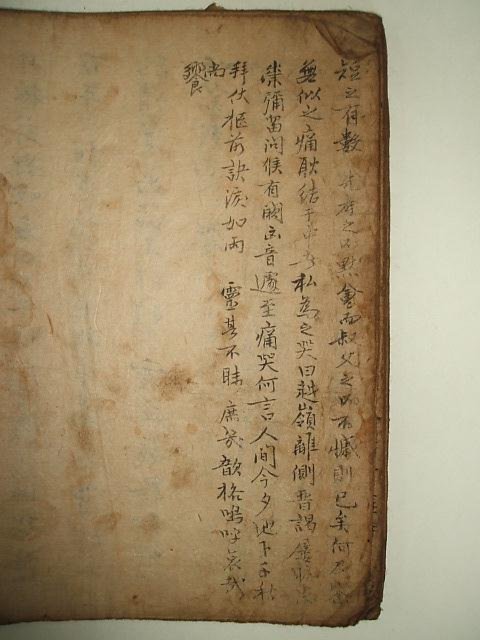 短之有數 之不點會而叔父之 不憾則已矣何
無似之痛耿結于中 私為之哭曰越嶺離側晋謁
柴彌留問候有闕凶音遽至痛哭何言人間今夕地下千秋
拜伏柩前訣淚如雨 靈其不昧庶幾歆格嗚呼哀哉
尚
饗